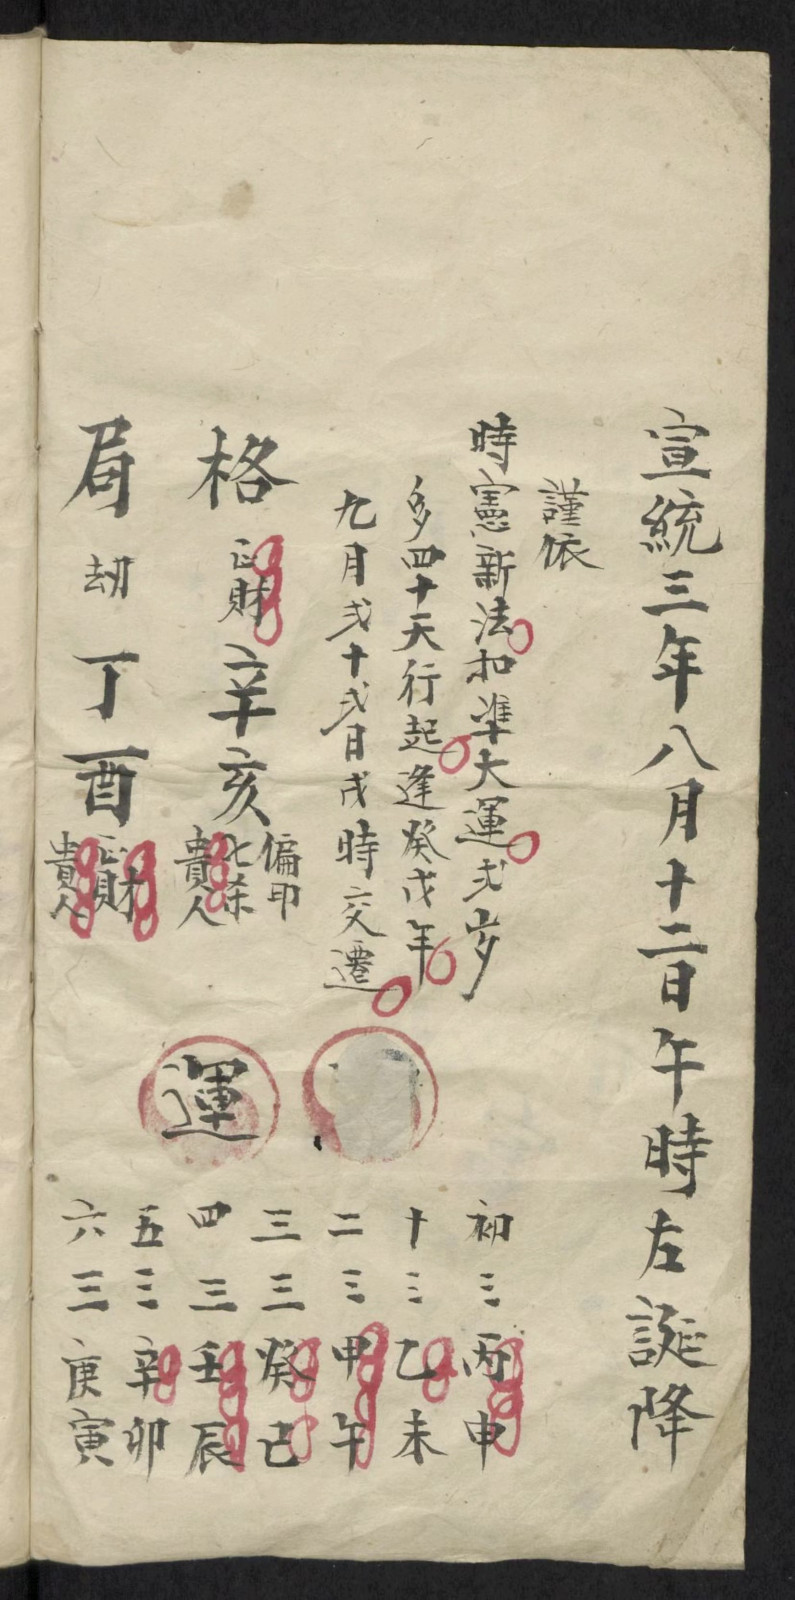 宣統三年八月十二日午時左誕降
謹依
時憲新法扣準大運弍岁
多四十天行起逢癸戊年
九月弍十弍日戌時交遷
格 正財 辛亥 偏印 七杀 貴人
局 劫 丁酉 正財 貴人
運
初三丙申
十三乙未
二三甲午
三三癸巳
四三壬辰
五三辛卯
六三庚寅